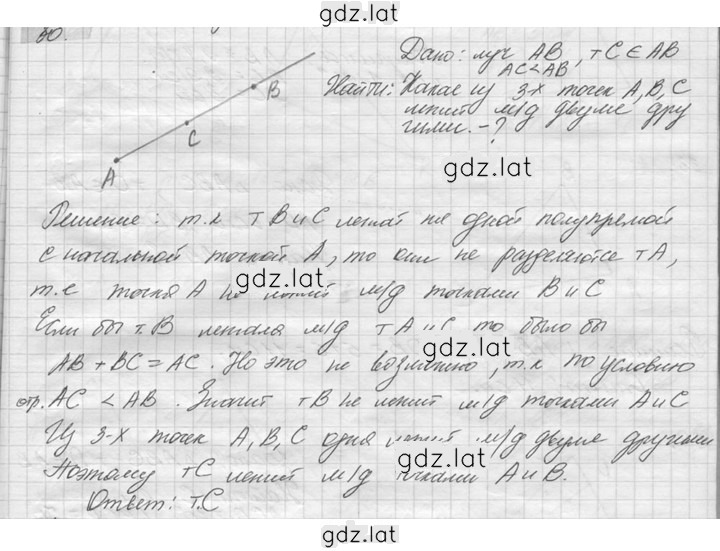 gdz.lat
30.
Дано: луч AB, тC ∈ AB
AC < AB
Найти: Какая из 3-х точек A, B, C
лежит м/д двумя дру
гими. - ?
B
C
A
gdz.lat
Решение: т.к т B и C лежат на одной полупрямой
с начальной точкой A, то они не разделяются тA,
gdz.lat
т.е точка A не лежит м/д точками B и C
Если бы т. B лежала м/д т A и C то было бы
gdz.lat
AB + BC = AC. Но это не возможно, т.к по условию
отр. AC < AB. Значит тB не лежит м/д точками A и C
Из 3-х точек A, B, C одна лежит м/д двумя другими
gdz.lat
Поэтому тC лежит м/д точками A и B.
Ответ: т.C
gdz.lat